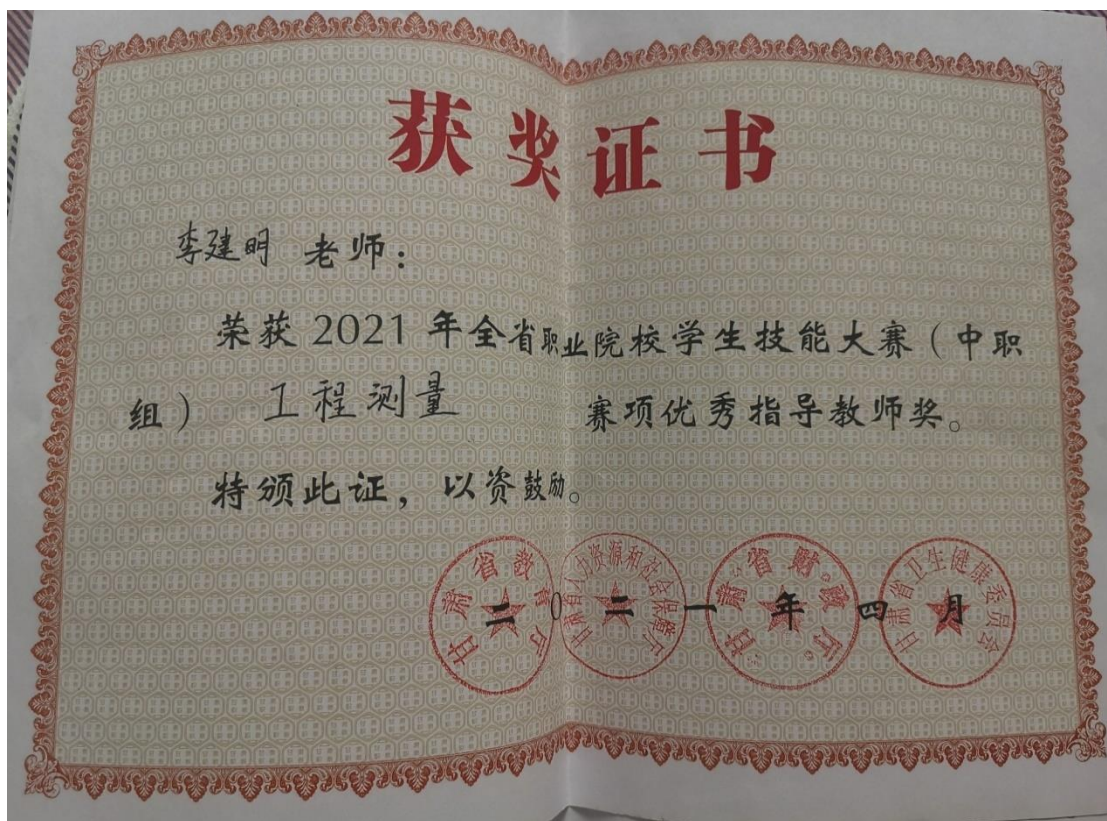 获奖证书
李建明 老师：
荣获 2021 年全省职业院校学生技能大赛（中职
组） 工程测量 赛项优秀指导教师奖。
特颁此证，以资鼓励。
甘肃省教育厅
甘肃省人力资源和社会保障厅
甘肃省财政厅
甘肃省卫生健康委员会
二〇二一年四月